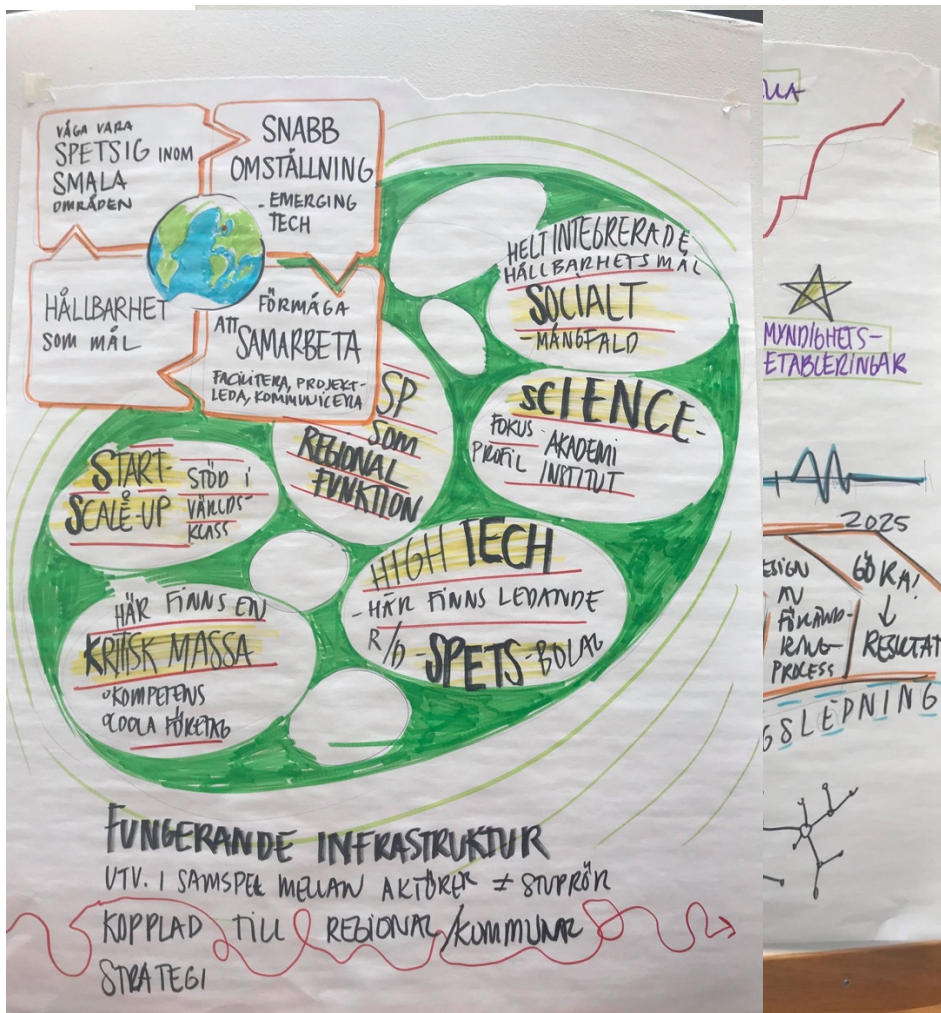 VÅGA VARA
SPETSIG INOM
SMALA
OMRÅDEN
SNABB
OMSTÄLLNING
- EMERGING
TECH
HÅLLBARHET
SOM MÅL
FÖRMÅGA
ATT
SAMARBETA
FACILITERA, PROJEKT-
LEDA, KOMMUNICERA
HELT INTEGRERADE
HÅLLBARHETSMÅL
SOCIALT
- MÅNGFALD
SP
SOM
REGIONAL
FUNKTION
SCIENCE-
FOKUS - AKADEMI
PROFIL INSTITUT
START- STÖD I
SCALE-UP VÄRLDS-
KLASS
HIGH TECH
- HÄR FINNS LEDANDE
R/D - SPETS-BOLAG
HÄR FINNS EN
KRITISK MASSA
• KOMPETENS
COOLA FÖRETAG
FUNGERANDE INFRASTRUKTUR
UTV. I SAMSPEL MELLAN AKTÖRER ≠ STUPRÖR
KOPPLAD TILL REGIONAL/KOMMUNAL
STRATEGI
MYNDIGHETS-
ETABLERINGAR
2025
ESIGN
AV
FÖRÄND-
RINGS-
PROCESS
GÖRA!
↓
RESULTAT
GSLEDNING